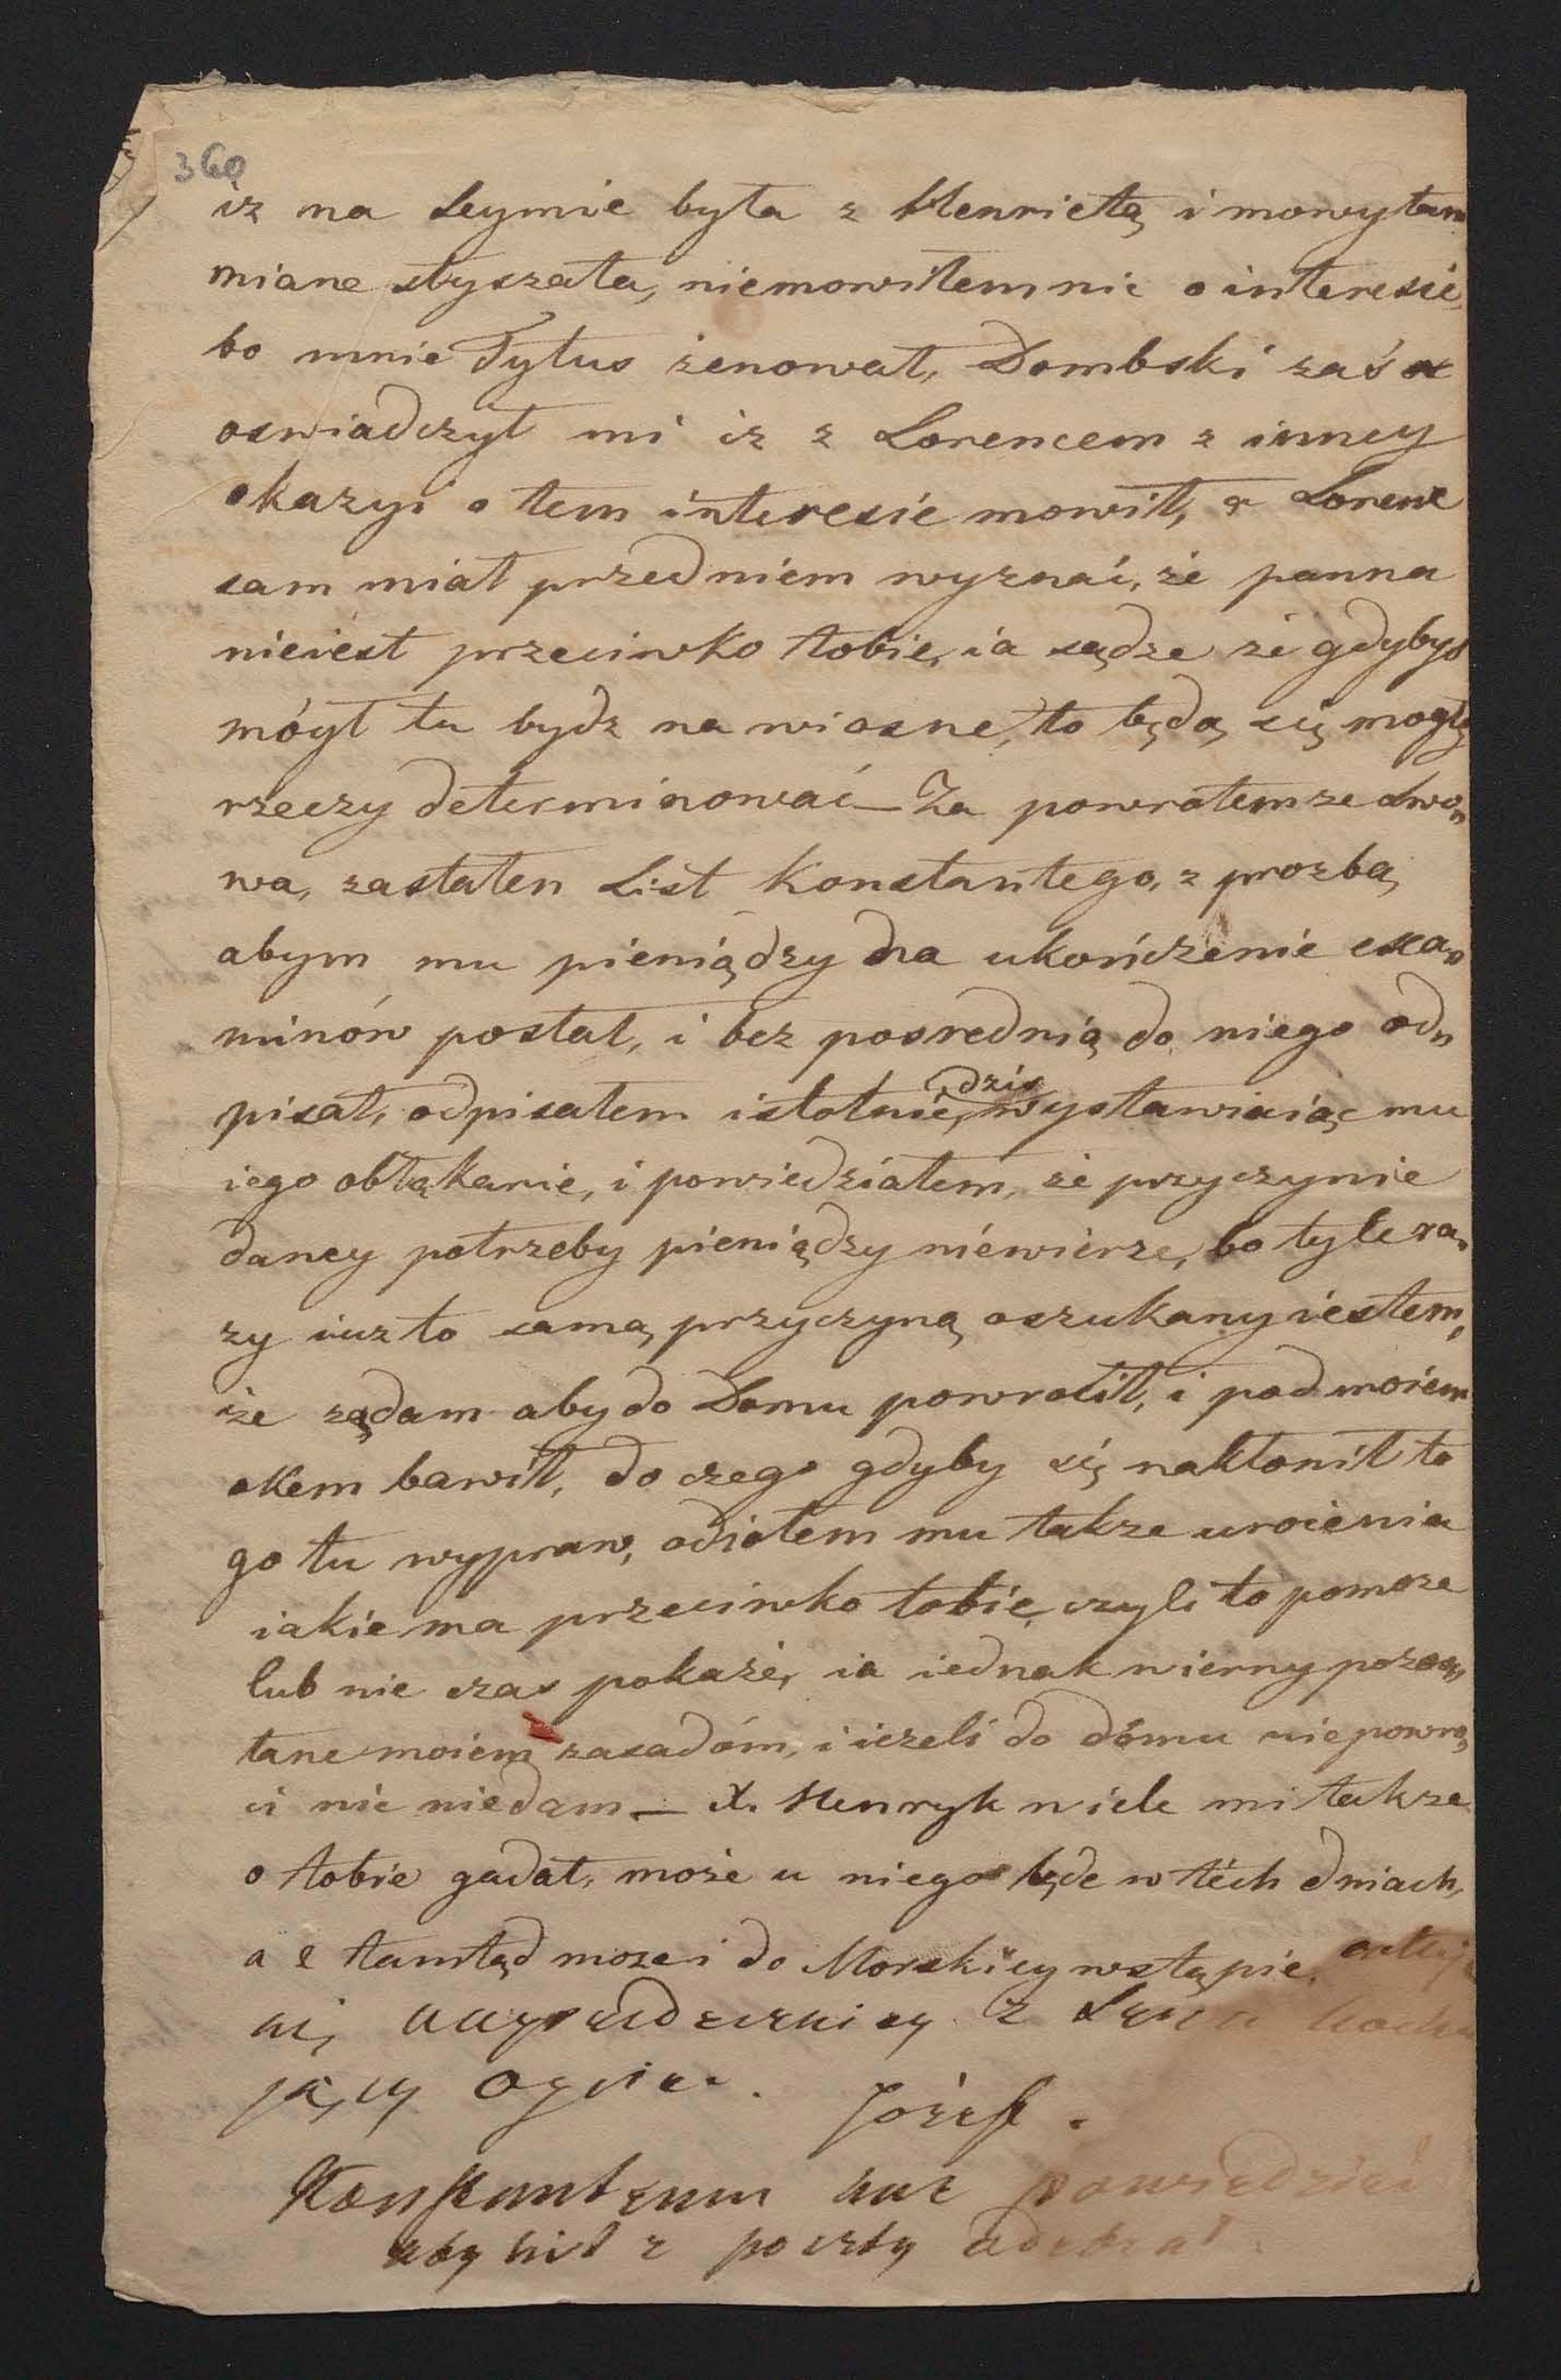 360
iz na Seymie była z Henrietą i mowy tam
miane słyszała, niemowiłem nic o interesie,
bo mnie Tytus zenował, Dombski zaś
oswiadczył mi iz z Lorencem z inney
okazyi o tem interesie mowił, a Lorenc
sam miał przedniem wyznać, że panna
nieiest przeciwko tobie, ia sądze że gdybys
mógł tu bydz na wiosne, to będą się mogły
rzeczy determinować — Za powrotem ze Lwo„
wa, zastałen List Konstantego, z prozbą
abym mu pieniądzy na ukończenie exa„
minów posłał, i bez posrednią do niego od„
pisał, odpisałem istotnie, dzis wystawiaiąc mu
iego obłąkanie, i powiedziałem, że przyczynie
daney potrzeby pieniądzy niewierze, bo tyle ra„
zy iuz to samą przyczyną oszukany iestem,
że rządam aby do Domu powrocił, i pod moiem
okem bawił, do czego gdyby się nakłonił to
go tu wypraw, odiołem mu takze uroienia
iakie ma przeciwko tobie, czyli to pomoze
lub nie czas pokaże, ia iednak wierny pozos„
tane moiem zasadóm, i iezeli do dómu niepowro„
ci nic niedam — X. Henryk wiele mi takze
o tobie gadał, może u niego będe w téch dniach,
a z tamtąd moze i do Morskiey wstąpie,
naysердeczniey z
jący Ociec. Józef.
Konstantemu każ powiedzieć
aby list z poczty odebrał.